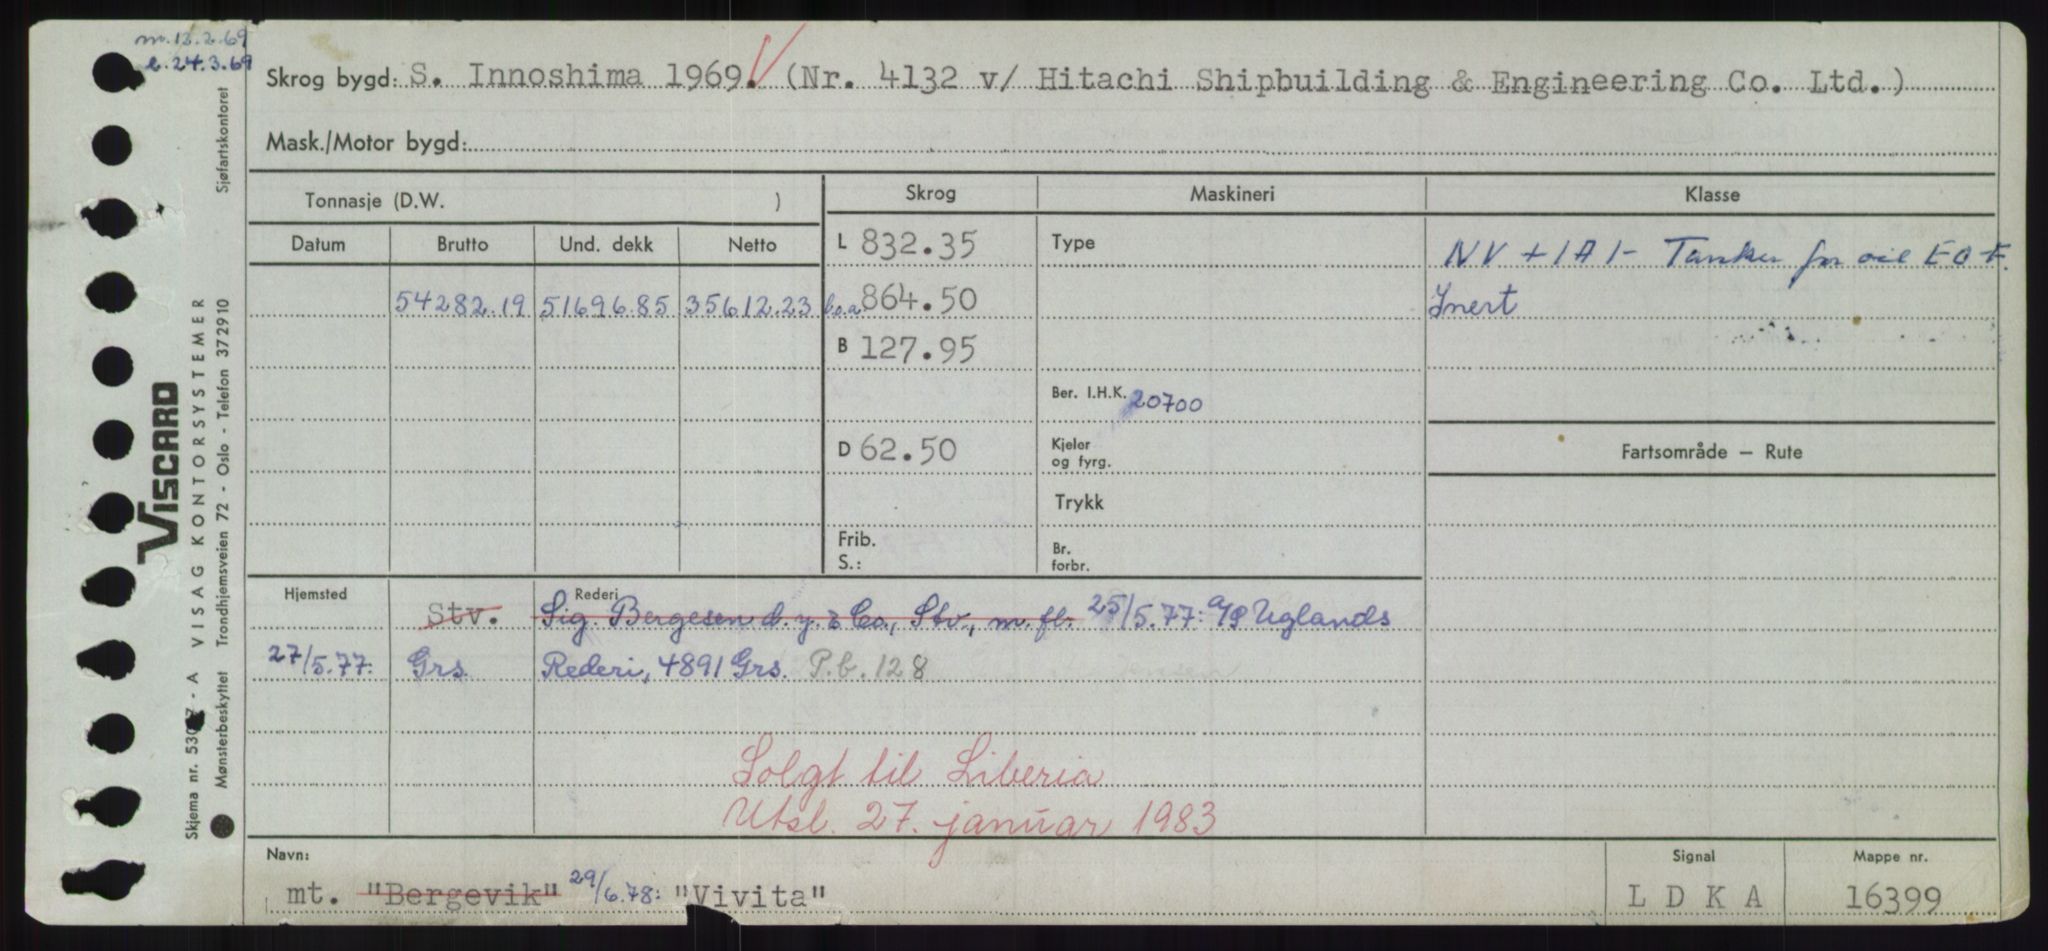 m. 12.2.69
b. 24.3.69
Skrog bygd: S. Innoshima 1969. (Nr. 4132 v/ Hitachi Shipbuilding & Engineering Co. Ltd.)
Mask./Motor bygd:
Tonnasje (D.W. )
Skrog Maskineri Klasse
Datum Brutto Und. dekk Netto
L 832.35
Type
NV + 1A1- Tanker for oil EO F.
54282.19 51696.85 35612.23
l.o.a. 864.50
Inert
B 127.95
Ber. I.H.K. 20700
D 62.50
Kjeler
og fyrg.
Fartsområde — Rute
Trykk
Frib.
S.:
Br.
forbr.
Hjemsted Rederi
Stv. Sig. Bergesen d.y. & Co., Stv., m.fl. 25/5.77: A/S Uglands
27/5.77: Grs. Rederi, 4891 Grs. P.b. 128
Solgt til Liberia
Utsl. 27. januar 1983
Navn: Signal Mappe nr.
mt. "Bergevik" 29/6.78: "Vivita" LDKA 16399
Sjøfartskontoret
VISCARD
VISAG KONTORSYSTEMER
Skjema nr. 5307 - A
Mønsterbeskyttet Trondhjemsveien 72 - Oslo - Telefon 372910